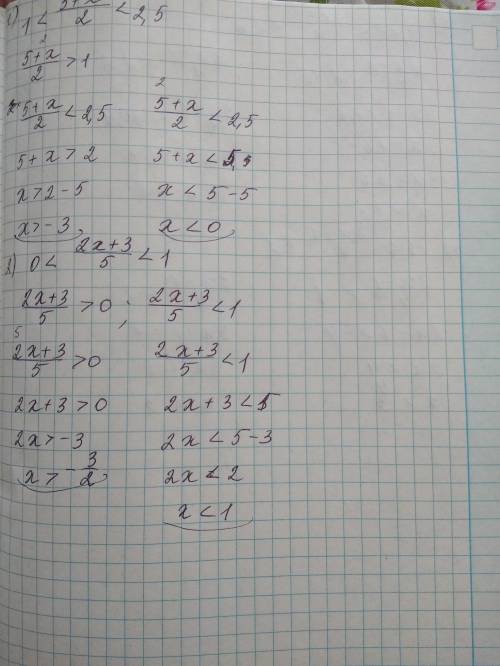 1) 1 < 5+x/2 < 2,5
2
5+x/2 > 1
5+x/2 < 2,5 2 5+x/2 < 2,5
5+x > 2 5+x < 5
x > 2-5 x < 5-5
x > -3 x < 0
2) 0 < 2x+3/5 < 1
2x+3/5 > 0 ; 2x+3/5 < 1
5 2x+3/5 > 0 2x+3/5 < 1
2x+3 > 0 2x+3 < 5
2x > -3 2x < 5-3
x > -3/2 2x < 2
x < 1